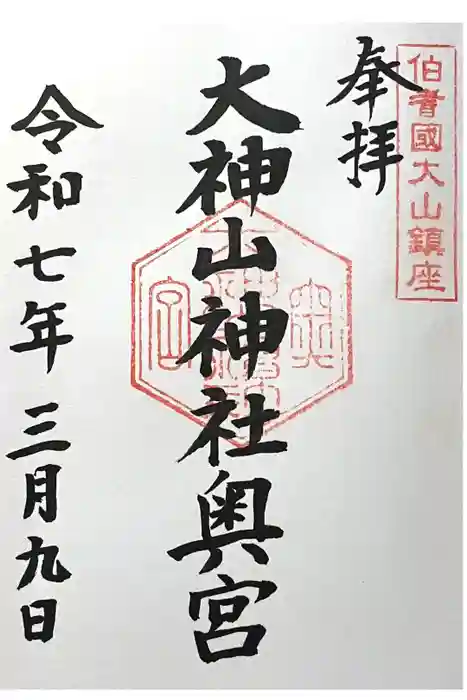 伯耆國大山鎮座
奉拝
大神山神社奥宮
令和七年三月九日
奥
宮